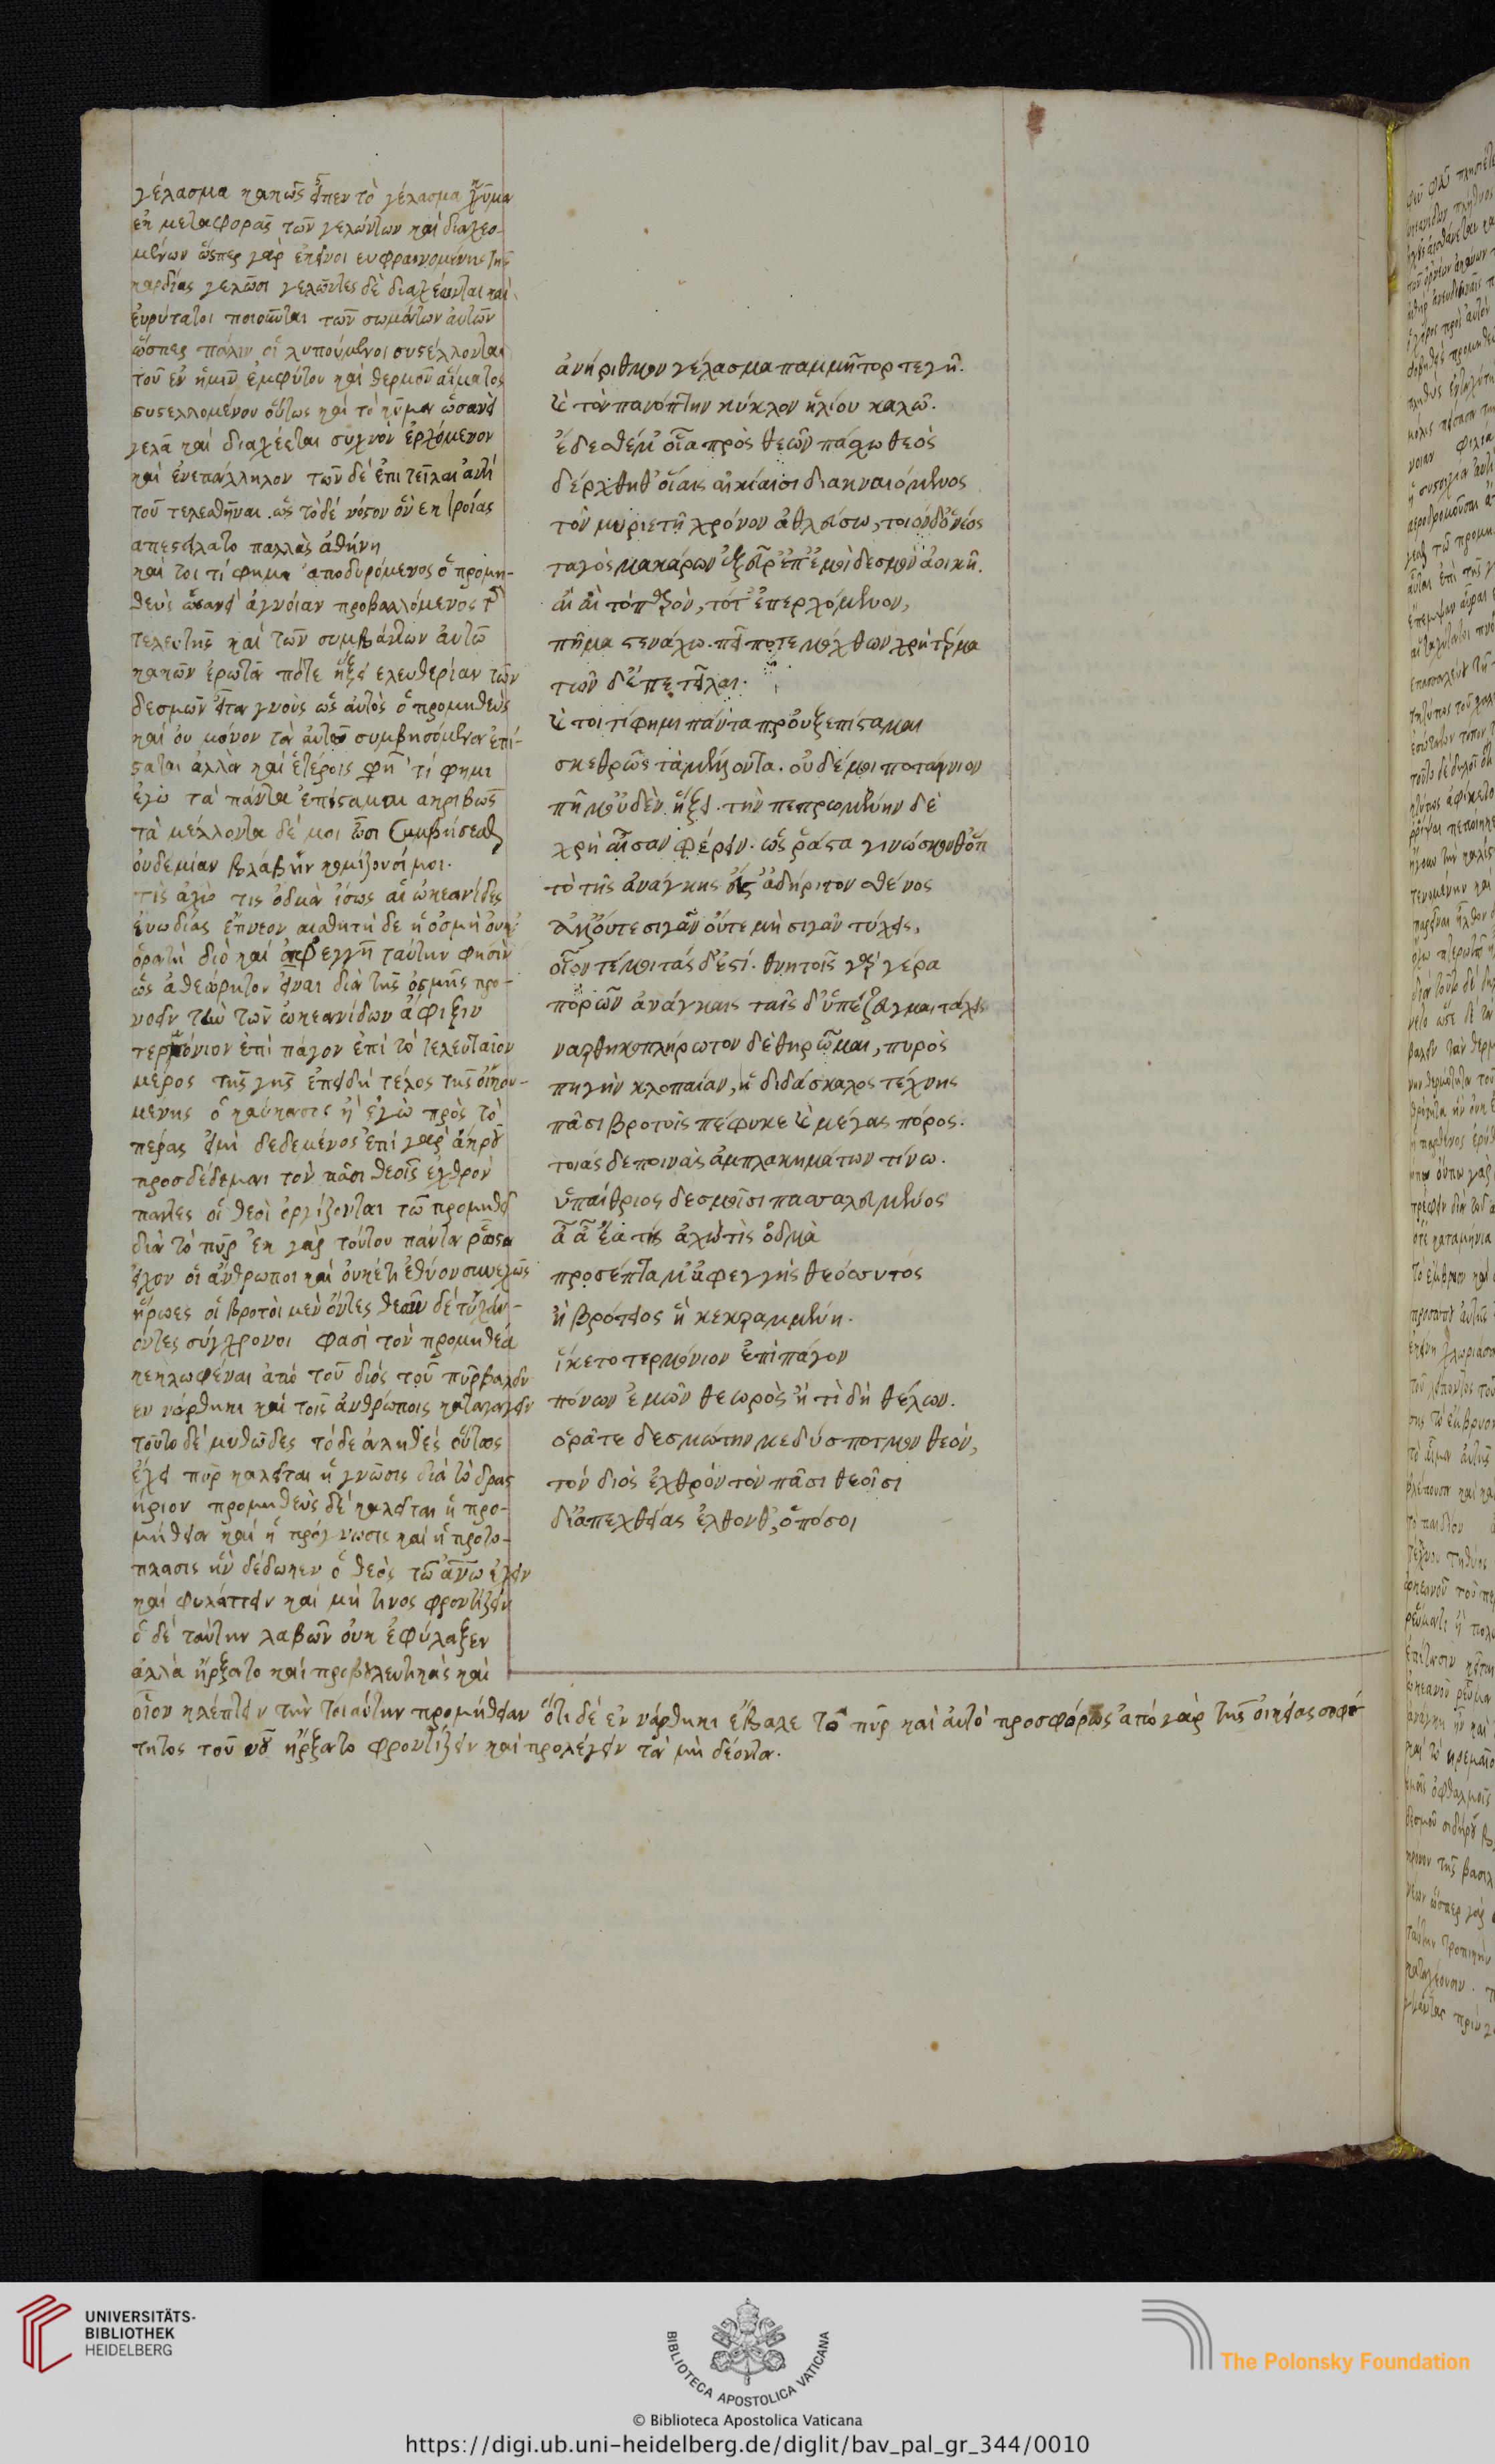 γέλασμα καλῶς εἶπεν τὸ γέλασμα κῦμα
ἐκ μεταφορᾶς τῶν γελώντων καὶ διαχεο-
μένων ὥσπερ γὰρ ἐκεῖνοι ευφραινομένης τῆς
καρδίας γελῶσι γελῶντες δὲ διαχέονται καὶ
τοῦ ἐν ἡμῖν ἐμφύτου καὶ θερμοῦ αἵματος
συστελλομένου οὕτως καὶ τὸ κῦμα ὡσανεὶ
γελᾶ καὶ διαχέεται συχνὸν ἐρχόμενον
καὶ ἐνεπάλληλον τῶν δὲ ἐπιτεῖλαι ἀντὶ
τοῦ τελεσθῆναι ὡς τὸ δὲ νόσον ὃν ἐκ τροίας
απεστείλατο παλλὰς ἀθήνη
καὶ τοι τί φημι ἀποδυρόμενος ὁ προμη-
θεὺς ὡσανεὶ ἀγνόιαν προβαλλόμενος
τελευτῆς καὶ τῶν συμβάντων ἀυτῶ
κακῶν ἐρωτᾶ πότε ἥξει ελευθερίαν τῶν
δεσμῶν εἶτα γνοὺς ὡς ἀυτὸς ὁ προμηθεὺς
καὶ ὀυ μόνον τὰ ἀυτῶ συμβησόμενα ἐπί-
σταται ἀλλὰ καὶ ἑτέροις φησὶ τί φημι
ἐγὼ τὰ πάντα ἐπίσταμαι ακριβῶς
τὰ μέλλοντα δέ μοι συμβήσεσθαι
ὀυδεμίαν βλάβην κομίζουσί μοι.
τίς ἀχὼ τις ὀδμὰ ἴσως αἱ ὠκεανίδες
ἐυωδίας ἔπνεον αισθητὴ δὲ ἡ ὀσμὴ ὀυχ
ὁρατὴ διὸ καὶ ἀφεγγῆ ταύτην φησὶν
ὡς ἀθεώρητον εἶναι διὰ τῆς ὀσμῆς προ-
νοεῖν τὴν τῶν ὠκεανίδων ἄφιξιν
τερμόνιον ἐπὶ πάγον ἐπὶ τὸ τελευταῖον
μέρος τῆς γῆς ἐπειδὴ τέλος τῆς ὀικου-
μενης ὁ καύκασος ἢ ἐγὼ πρὸς τὸ
πέρας εἰμὶ δεδεμένος ἐπὶ γὰρ ἄκρου
προσδέδεμαι τὸν πᾶσι θεοῖς ἐχθρὸν
παντες οἱ θεοὶ ὀργίζονται τῶ προμηθεῖ
διὰ τὸ πῦρ ἐκ γὰρ τούτου πάντα ῥᾶστα
εἶχον οἱ ἄνθρωποι καὶ ὀυκέτι ἔθυον συνεχῶς
ἥρωες οἱ βροτοὶ μὲν ὄντες θεῶν δὲ τυγχάν-
οντες σύγχρονοι φασὶ τὸν προμηθέα
κεκλωφέναι ἀπὸ τοῦ διὸς τοῦ πῦρ βαλεῖν
εν νάρθηκι καὶ τοῖς ἀνθρώποις καταγαγεῖν
τοῦτο δὲ μυθῶδες τὸ δὲ ἀληθὲς οὕτως
ἔχει πῦρ καλεῖται ἡ γνῶσις διὰ τὸ δρασ
τήριον προμηθεὺς δὲ καλεῖται ἡ προ-
μήθεια καὶ ἡ πρόγνωσις
πλασις ἣν δέδωκεν ὁ θεὸς τῶ ἀνθρώπω ἔχειν
καὶ φυλάττειν καὶ μή τινος φροντίζειν
ὁ δὲ ταύτην λαβὼν ὀυκ ἐφύλαξεν
ἀλλὰ ἤρξατο καὶ προβουλευτικὰς καὶ
οἷον κλέπτειν τὴν τοιαύτην προμήθειαν ὅτι δὲ ἐν νάρθηκι ἔβαλε τὸ πῦρ καὶ ἀυτὸ προσφόρως ἀπὸ γὰρ τῆς ὀικείας σοφό
τητος τοῦ νοῦ ἤρξατο φροντίζειν καὶ προλέγειν τὰ μὴ δέοντα.
ἀνήριθμον γέλασμα παμμῆτορ τε γῆ.
καὶ τὸν πανόπτην κύκλον ἡλίου καλῶ.
ἴδεσθέ μ' οἷα πρὸς θεῶν πάσχω θεὸς
δέρχθηθ' οἵαις αἰκίαισι διακναιόμενος
τὸν μυριετῆ χρόνον ἀθλεύσω, τοιόνδ' ὁ νέος
ταγὸς μακάρων ἐξεῦρ' ἐπ' ἐμοὶ δεσμὸν ἀεικῆ.
αἲ αἲ τὸ παρὸν, τότ' ἐπερχόμενον,
πῆμα στενάχω. πῆ ποτε μόχθων χρὴ τέρμα
τῶν δ' ἐπιτεῖλαι.
καὶ τοι τί φημι πάντα προυξεπίσταμαι
σκεθρῶς τὰ μέλλοντα. οὐδέ μοι ποταίνιον
πῆμ' οὐδὲν ἥξει. τὴν πεπρωμένην δὲ
χρὴ αἶσαν φέρειν. ὡς ῥᾶστα γινώσκονθ' ὅτι
τὸ τῆς ἀνάγκης ἐστ' ἀδήριτον σθένος
ἀλλ' οὔτε σιγᾶν οὔτε μὴ σιγᾶν τύχας,
οἷόν τέ μοι τάσδ' ἐστί. θνητοῖς γὰρ γέρα
πορὼν ἀνάγκαις ταῖσδ' ὑπέζευγμαι τάλας
ναρθηκοπλήρωτον δὲ θηρῶμαι, πυρὸς
πηγὴν κλοπαίαν, ἣ διδάσκαλος τέχνης
πᾶσι βροτοῖς πέφυκε καὶ μέγας πόρος.
τοιάσδε ποινὰς ἀμπλακημάτων τίνω.
ὑπαίθριος δεσμοῖσι πασσαλευμένος
ἆ ἆ ἔα τίς ἀχὼ τίς ὀδμὰ
προσέπτα μ' ἀφεγγὴς θεόσσυτός
ἢ βρότειος ἢ κεκραμμένη.
ἵκετο τερμόνιον ἐπὶ πάγον
πόνων ἐμῶν θεωρὸς ἢ τὶ δὴ θέλων.
ὁρᾶτε δεσμώτην με δύσποτμον θεόν,
τὸν διὸς ἐχθρὸν τὸν πᾶσι θεοῖσι
δι' ἀπεχθείας ἐλθονθ', ὁπόσοι
UNIVERSITÄTS-
BIBLIOTHEK
HEIDELBERG
BIBLIOTECA APOSTOLICA VATICANA
The Polonsky Foundation
© Biblioteca Apostolica Vaticana
https://digi.ub.uni-heidelberg.de/diglit/bav_pal_gr_344/0010